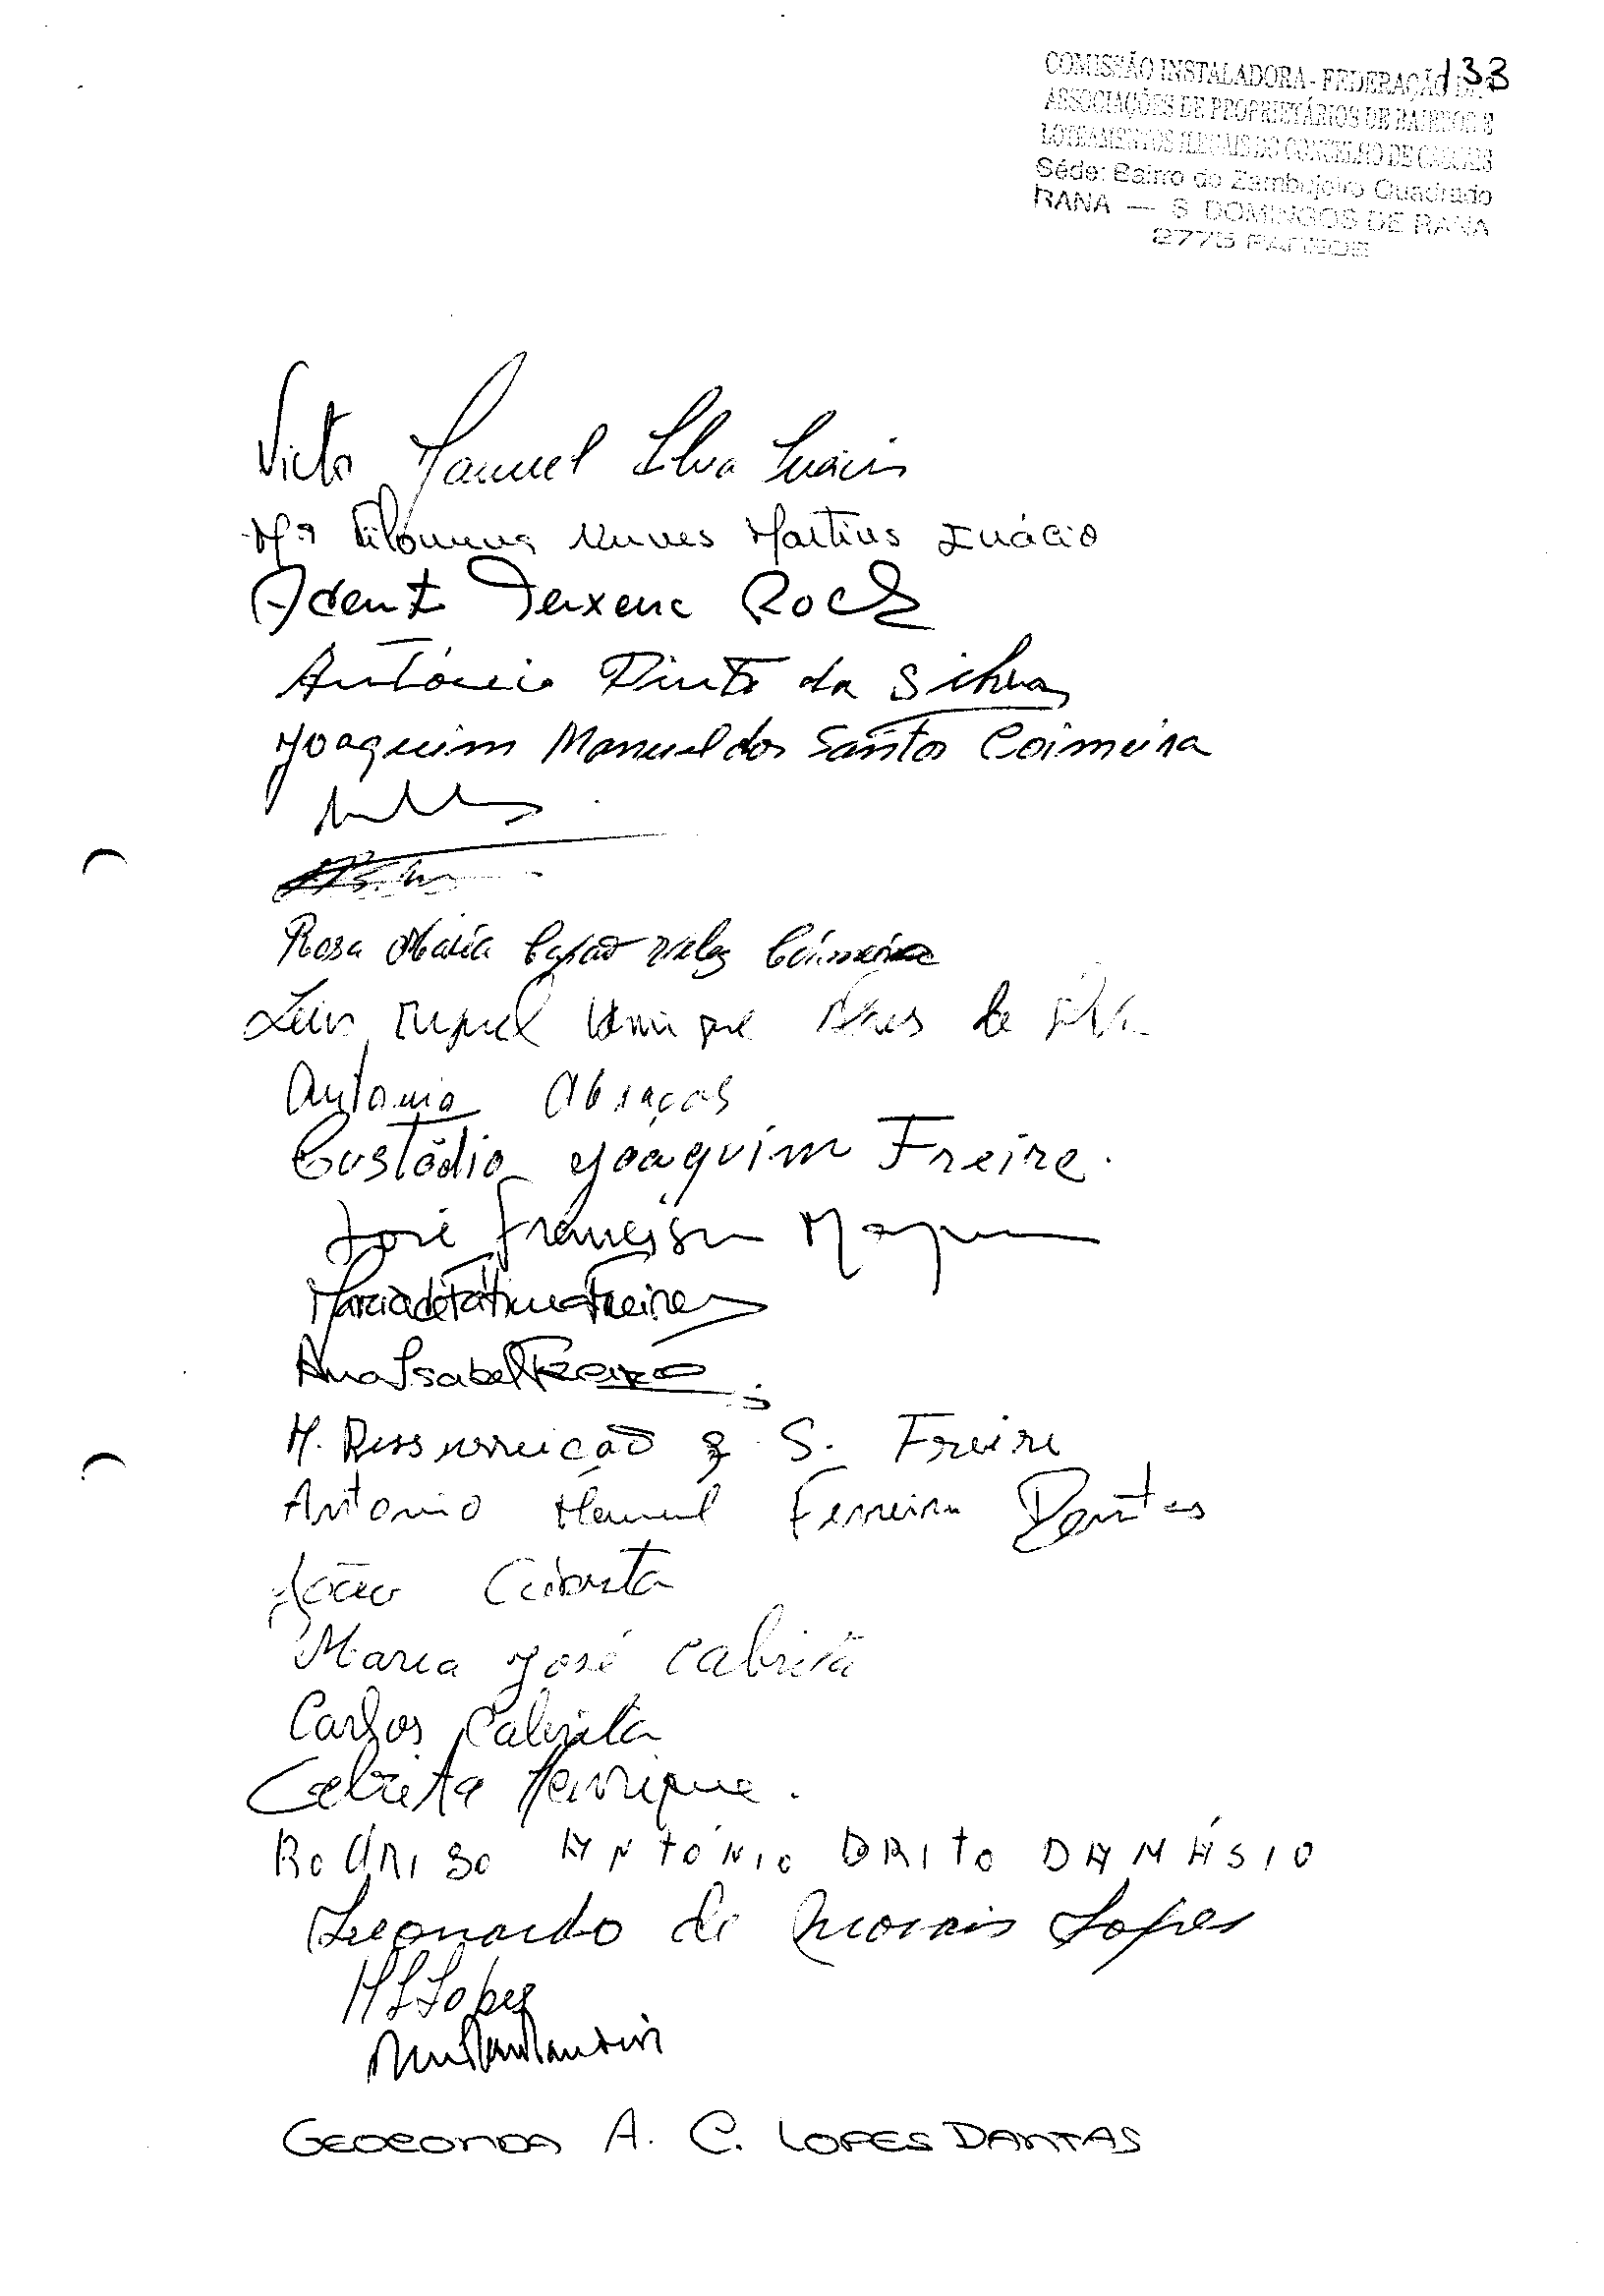 133
COMISSÃO INSTALADORA - FEDERAÇÃO DE
ASSOCIAÇÕES DE PROPRIETÁRIOS DE BAIRROS E
LOTEAMENTOS ILEGAIS DO CONCELHO DE CASCAIS
Séde: Bairro do Zambujeiro Quadrado
RANA — S DOMINGOS DE RANA
2775 PAREDE
Victor Manuel Silva
Mª Filomena Nunes Martins Inácio
Teixeira Rocha
António Pinto da Silva
Joaquim Manuel dos Santos Coimeira
Rosa Maria Coimeira
Luis Miguel Henrique da Silva
Antonio Abraços
Custódio Joaquim Freire.
José Francisco
Maria de Fátima Freire
Ana Isabel Freire
M. Ressurreição S. Freire
Antonio Manuel Ferreira Dantas
João Cabrita
Maria José Cabrita
Carlos Cabrita
Cabrita Henrique.
RODRIGO ANTÓNIO BRITO DAMÁSIO
Leonardo de Morais Lopes
M L Lopes
GEOCONDA A. C. LOPES DANTAS